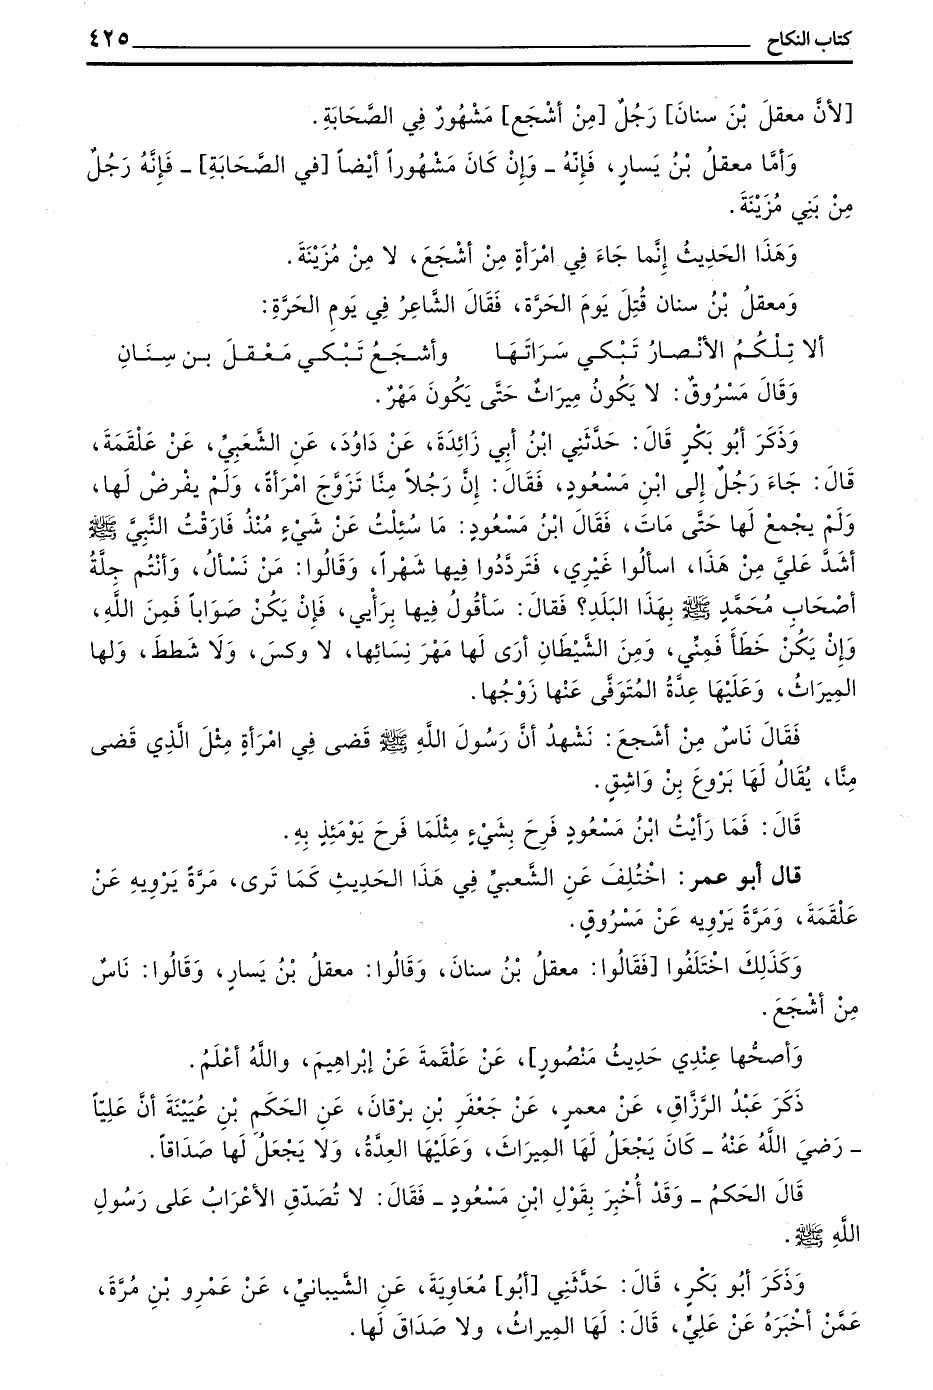 كتاب النكاح ٤٢٥
[لأنَّ معقلَ بْنَ سنانَ] رَجُلٌ [مِنْ أَشْجَعِ] مَشْهُورٌ فِي الصَّحَابَةِ.
وَأَمَّا معقلُ بْنُ يَسارٍ، فَإِنَّهُ ـ وَإِنْ كَانَ مَشْهُوراً أَيْضاً [في الصَّحَابَةِ] ـ فَإِنَّهُ رَجُلٌ
مِنْ بَنِي مُزَيْنَةَ.
وَهَذَا الحَدِيثُ إِنَّما جَاءَ فِي امْرَأةٍ مِنْ أشْجَعَ، لا مِنْ مُزَيْنَةَ.
وَمعقلُ بْنُ سنان قُتِلَ يَومَ الحَرَّة، فَقَالَ الشَّاعِرُ فِي يَومِ الحَرَّةِ:
ألا تِلْكُمُ الأنْصارُ تَبْكي سَرَاتَهَا وأشجَعُ تَبْكي مَعْقلَ بن سِنَانِ
وَقَالَ مَسْرُوقٌ: لا يَكُونُ مِيرَاثٌ حَتَّى يَكُونَ مَهْرٌ.
وَذَكَرَ أَبُو بَكْرٍ قَالَ: حَدَّثَنِي ابْنُ أَبِي زَائِدَةَ، عَنْ دَاوُدَ، عَنِ الشَّعبيِّ، عَنْ عَلْقَمَةَ،
قَالَ: جَاءَ رَجُلٌ إِلى ابْنِ مَسْعُودٍ، فَقَالَ: إِنَّ رَجُلاً مِنَّا تَزَوَّجَ امْرَأةً، وَلَمْ يفْرضْ لَها،
وَلَمْ يجْمعْ لَها حَتَّى مَاتَ، فَقَالَ ابْنُ مَسْعُودٍ: مَا سُئِلْتُ عَنْ شَيْءٍ مُنْذُ فَارَقْتُ النَّبِيَّ ﷺ
أشَدَّ عَليَّ مِنْ هَذَا، اسألُوا غَيْرِي، فَتَردَّدُوا فِيها شَهْراً، وَقَالُوا: مَنْ نَسْأَلُ، وَأَنْتُم جِلَّةُ
أصْحَابِ مُحَمَّدٍ ﷺ بِهَذَا البَلَدِ؟ فَقالَ: سَأَقُولُ فِيها بِرَأْيي، فَإِنْ يَكُنْ صَوَاباً فَمِنَ اللَّهِ،
وَإِنْ يَكُنْ خَطَأً فَمِنِّي، وَمِنَ الشَّيْطَانِ أرَى لَها مَهْرَ نِسَائِها، لا وكسَ، وَلَا شططَ، وَلها
المِيرَاثُ، وَعَلَيْهَا عِدَّةُ المُتَوَفَّى عَنْها زَوْجُها.
فَقَالَ نَاسٌ مِنْ أشجعَ: نَشْهدُ أنَّ رَسُولَ اللَّهِ ﷺ قَضى فِي امْرَأةٍ مِثْلَ الَّذِي قَضى
مِنَّا، يُقَالُ لَهَا بَرْوعَ بِنْ وَاشِقٍ.
قَالَ: فَمَا رَأيْتُ ابْنُ مَسْعُودٍ فَرِحَ بِشَيْءٍ مِثْلَمَا فَرحَ يَوْمَئِذٍ بِهِ.
قال أبو عمر: اخْتُلِفَ عَنِ الشَّعبيِّ فِي هَذَا الحَدِيثِ كَمَا تَرى، مَرَّةً يَرْوِيهِ عَنْ
عَلْقَمَةَ، وَمَرَّةً يَرْوِيه عَنْ مَسْرُوقٍ.
وَكَذَلِكَ اخْتَلَفُوا [فَقَالُوا: معقلُ بْنُ سنانَ، وَقَالُوا: معقلُ بْنُ يَسارٍ، وَقَالُوا: نَاسٌ
مِنْ أَشْجَعَ.
وَأصحُّها عِنْدِي حَدِيثُ مَنْصُورٍ]، عَنْ عَلْقمةَ عَنْ إبْراهِيمَ، واللَّهُ أعْلَمُ.
ذَكَرَ عَبْدُ الرَّزَّاقِ، عَنْ معمرٍ، عَنْ جَعْفَرِ بْنِ برْقانَ، عَنِ الحَكَمِ بْنِ عُيَيْنَةَ أنَّ عَلِيّاً
ـ رَضيَ اللَّهُ عَنْهُ ـ كَانَ يَجْعَلُ لَهَا المِيرَاثَ، وَعَلَيْهَا العِدَّةُ، وَلَا يَجْعَلُ لَها صَدَاقاً.
قَالَ الحَكمُ ـ وَقَدْ أُخْبِرَ بِقَوْلِ ابْنِ مَسْعُودٍ ـ فَقَالَ: لا تُصَدّقِ الأعْرَابُ عَلى رَسُولِ
اللَّهِ ﷺ.
وَذَكَرَ أَبُو بَكْرٍ، قَالَ: حَدَّثَنِي [أَبُو] مُعَاوِيَةَ، عَنِ الشَّيبانيِّ، عَنْ عَمْرِو بْنِ مُرَّةَ،
عَمَّنْ أخْبَرَهُ عَنْ عَليٍّ، قَالَ: لَهَا المِيراثُ، ولا صَدَاقَ لَها.